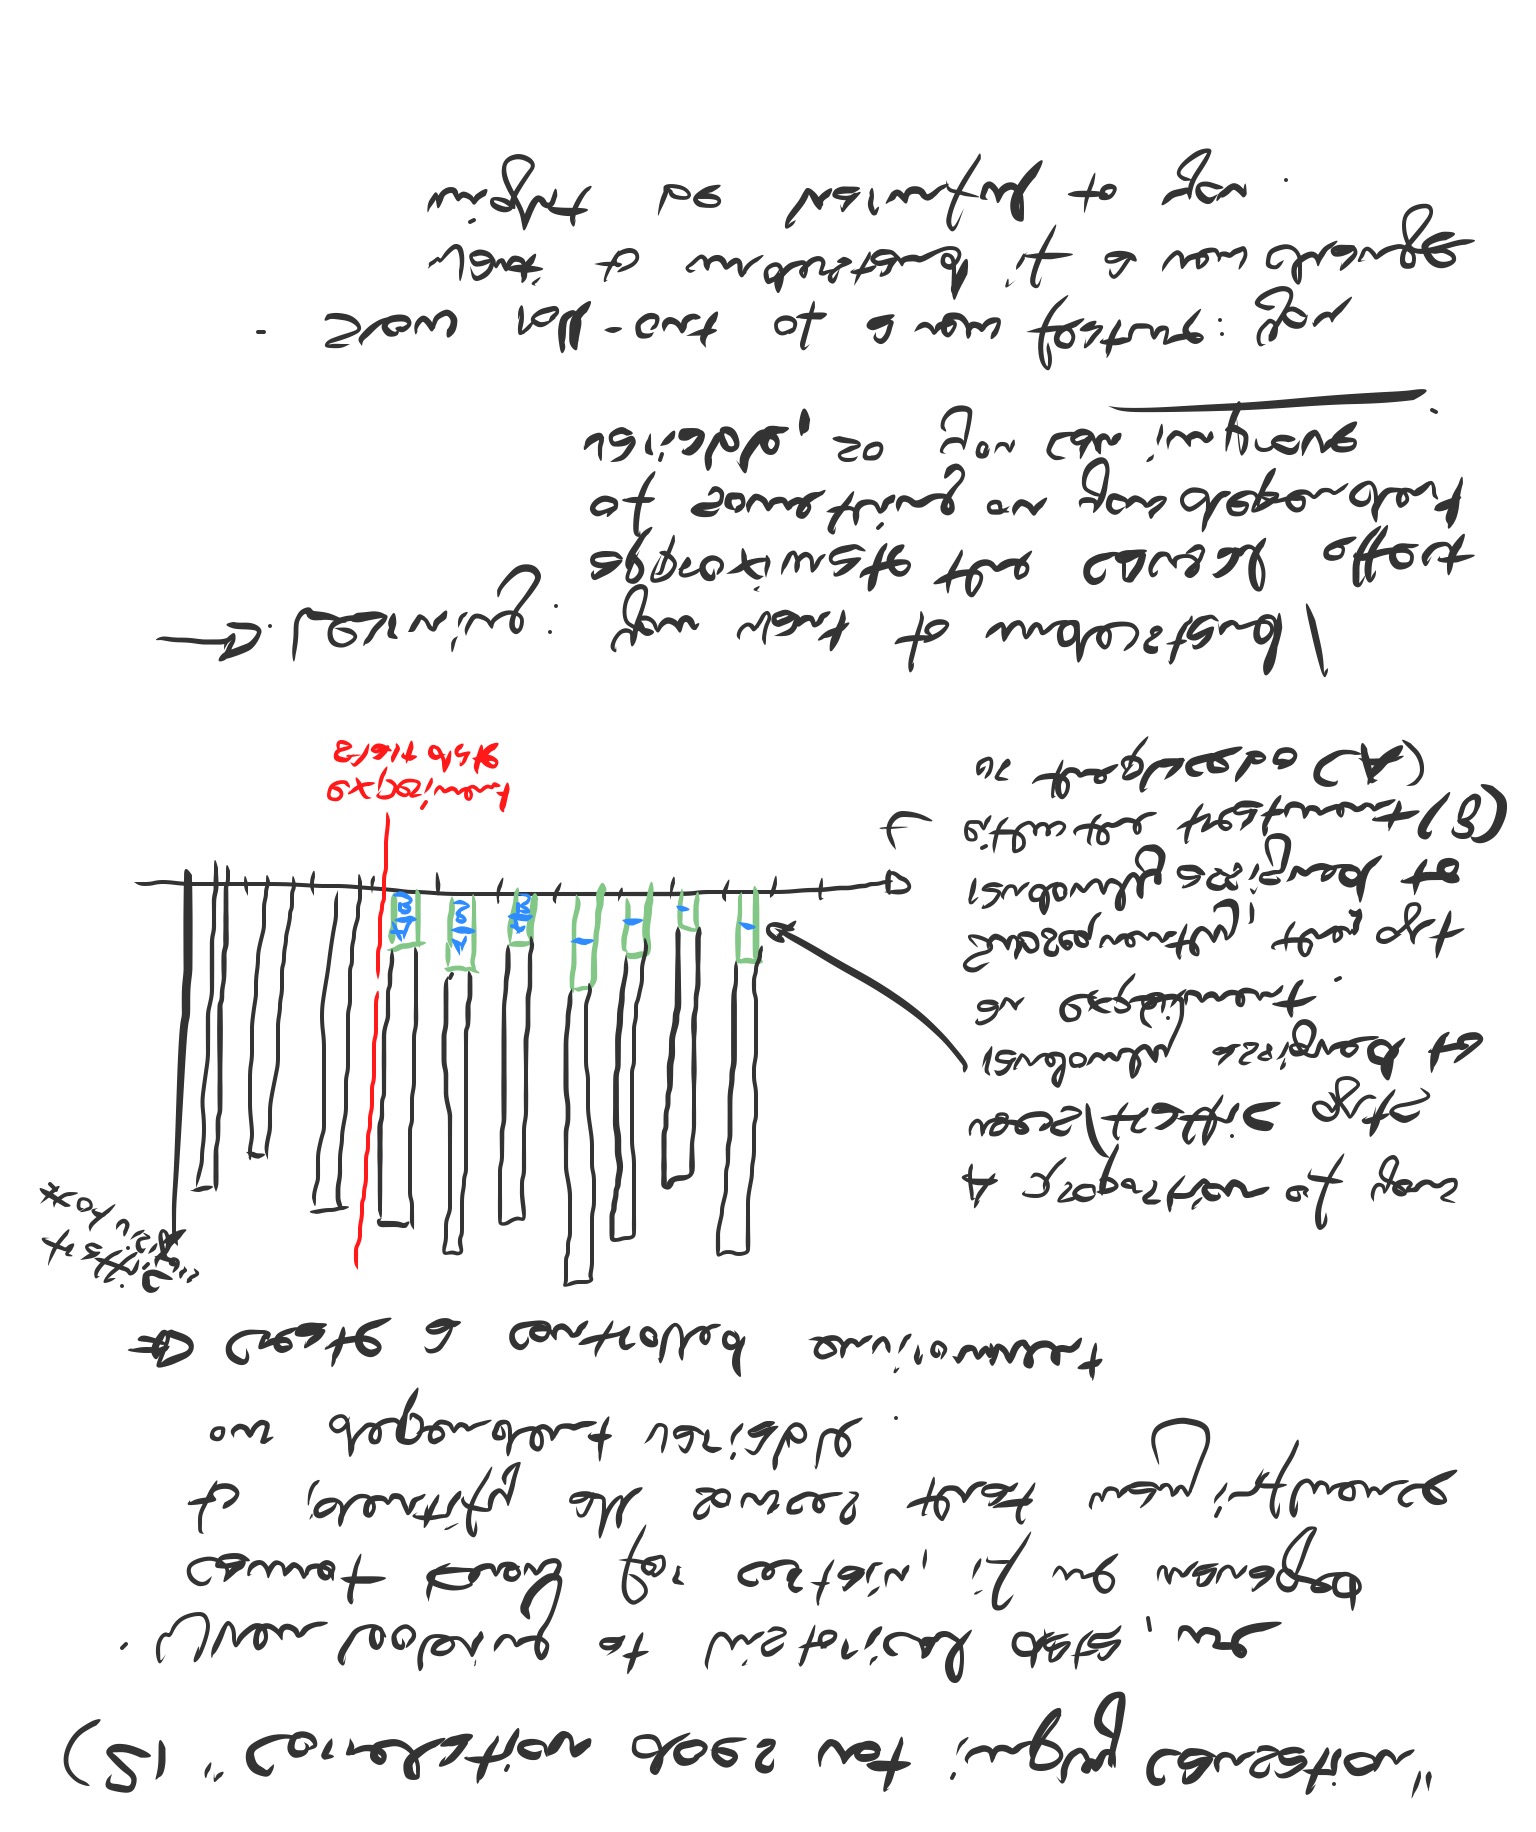 (2) "Correlation does not imply causation"
· When looking at historical data, we
cannot know for certain, if we managed
to identify all sources that may influence
our dependent variable.
→ Create a controlled environment
traffic
# of visitors
A proportion of your
users/traffic gets
randomly assigned to
an experiment.
Subsequently, they get
randomly assigned to
either the treatment (B)
or the placebo (A)
A
B
A
B
A
B
t
experiment
start date
→ · Learning: you want to understand/
approximate the causal effect
of something on your dependent
variable, so you can improve.
- Slow roll-out of a new feature: you
want to understand if a new change
might be harmful to you.